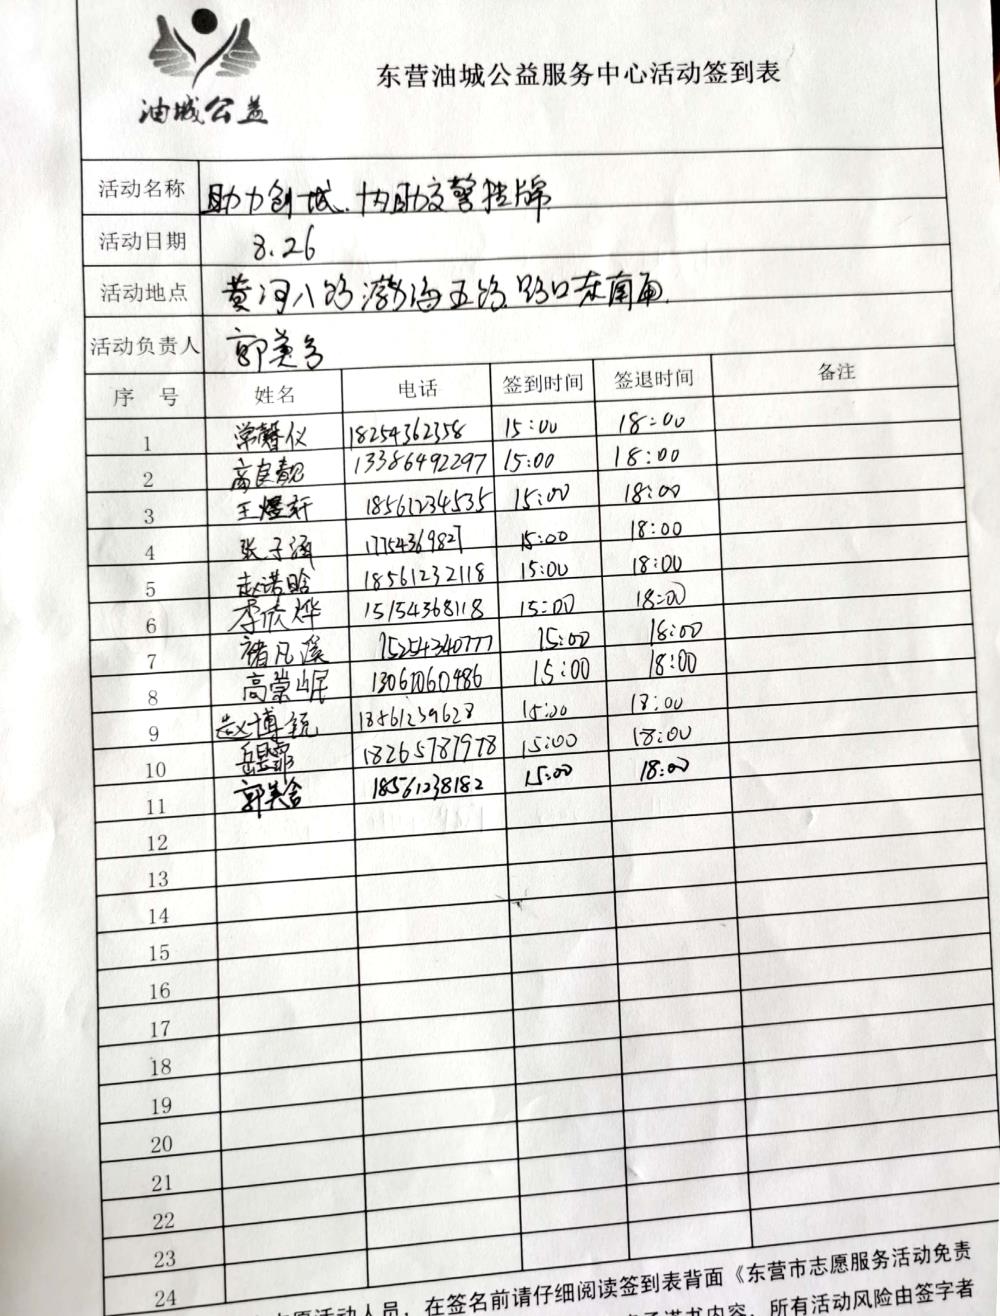 油城公益
东营油城公益服务中心活动签到表
活动名称 助力创城.协助交警挂牌
活动日期 8.26
活动地点 黄河八路渤海五路.路口东南面.
活动负责人 郭美含
序 号 姓名 电话 签到时间 签退时间 备注
1 常馨仪 18254362358 15:00 18:00
2 高自靓 13386492297 15:00 18:00
3 王煜轩 18561234535 15:00 18:00
4 张子涵 1775436982 15:00 18:00
5 赵诺晗 18561232118 15:00 18:00
6 李依烨 15154368118 15:00 18:00
7 褚凡溪 15254340777 15:00 18:00
8 高崇岷 13061060486 15:00 18:00
9 赵博 18561239628 15:00 18:00
10 岳昱霏 18265787978 15:00 18:00
11 郭美含 18561238182 15:00 18:00
12
13
14
15
16
17
18
19
20
21
22
23
24
志愿活动人员，在签名前请仔细阅读签到表背面《东营市志愿服务活动免责
承诺书内容，所有活动风险由签字者